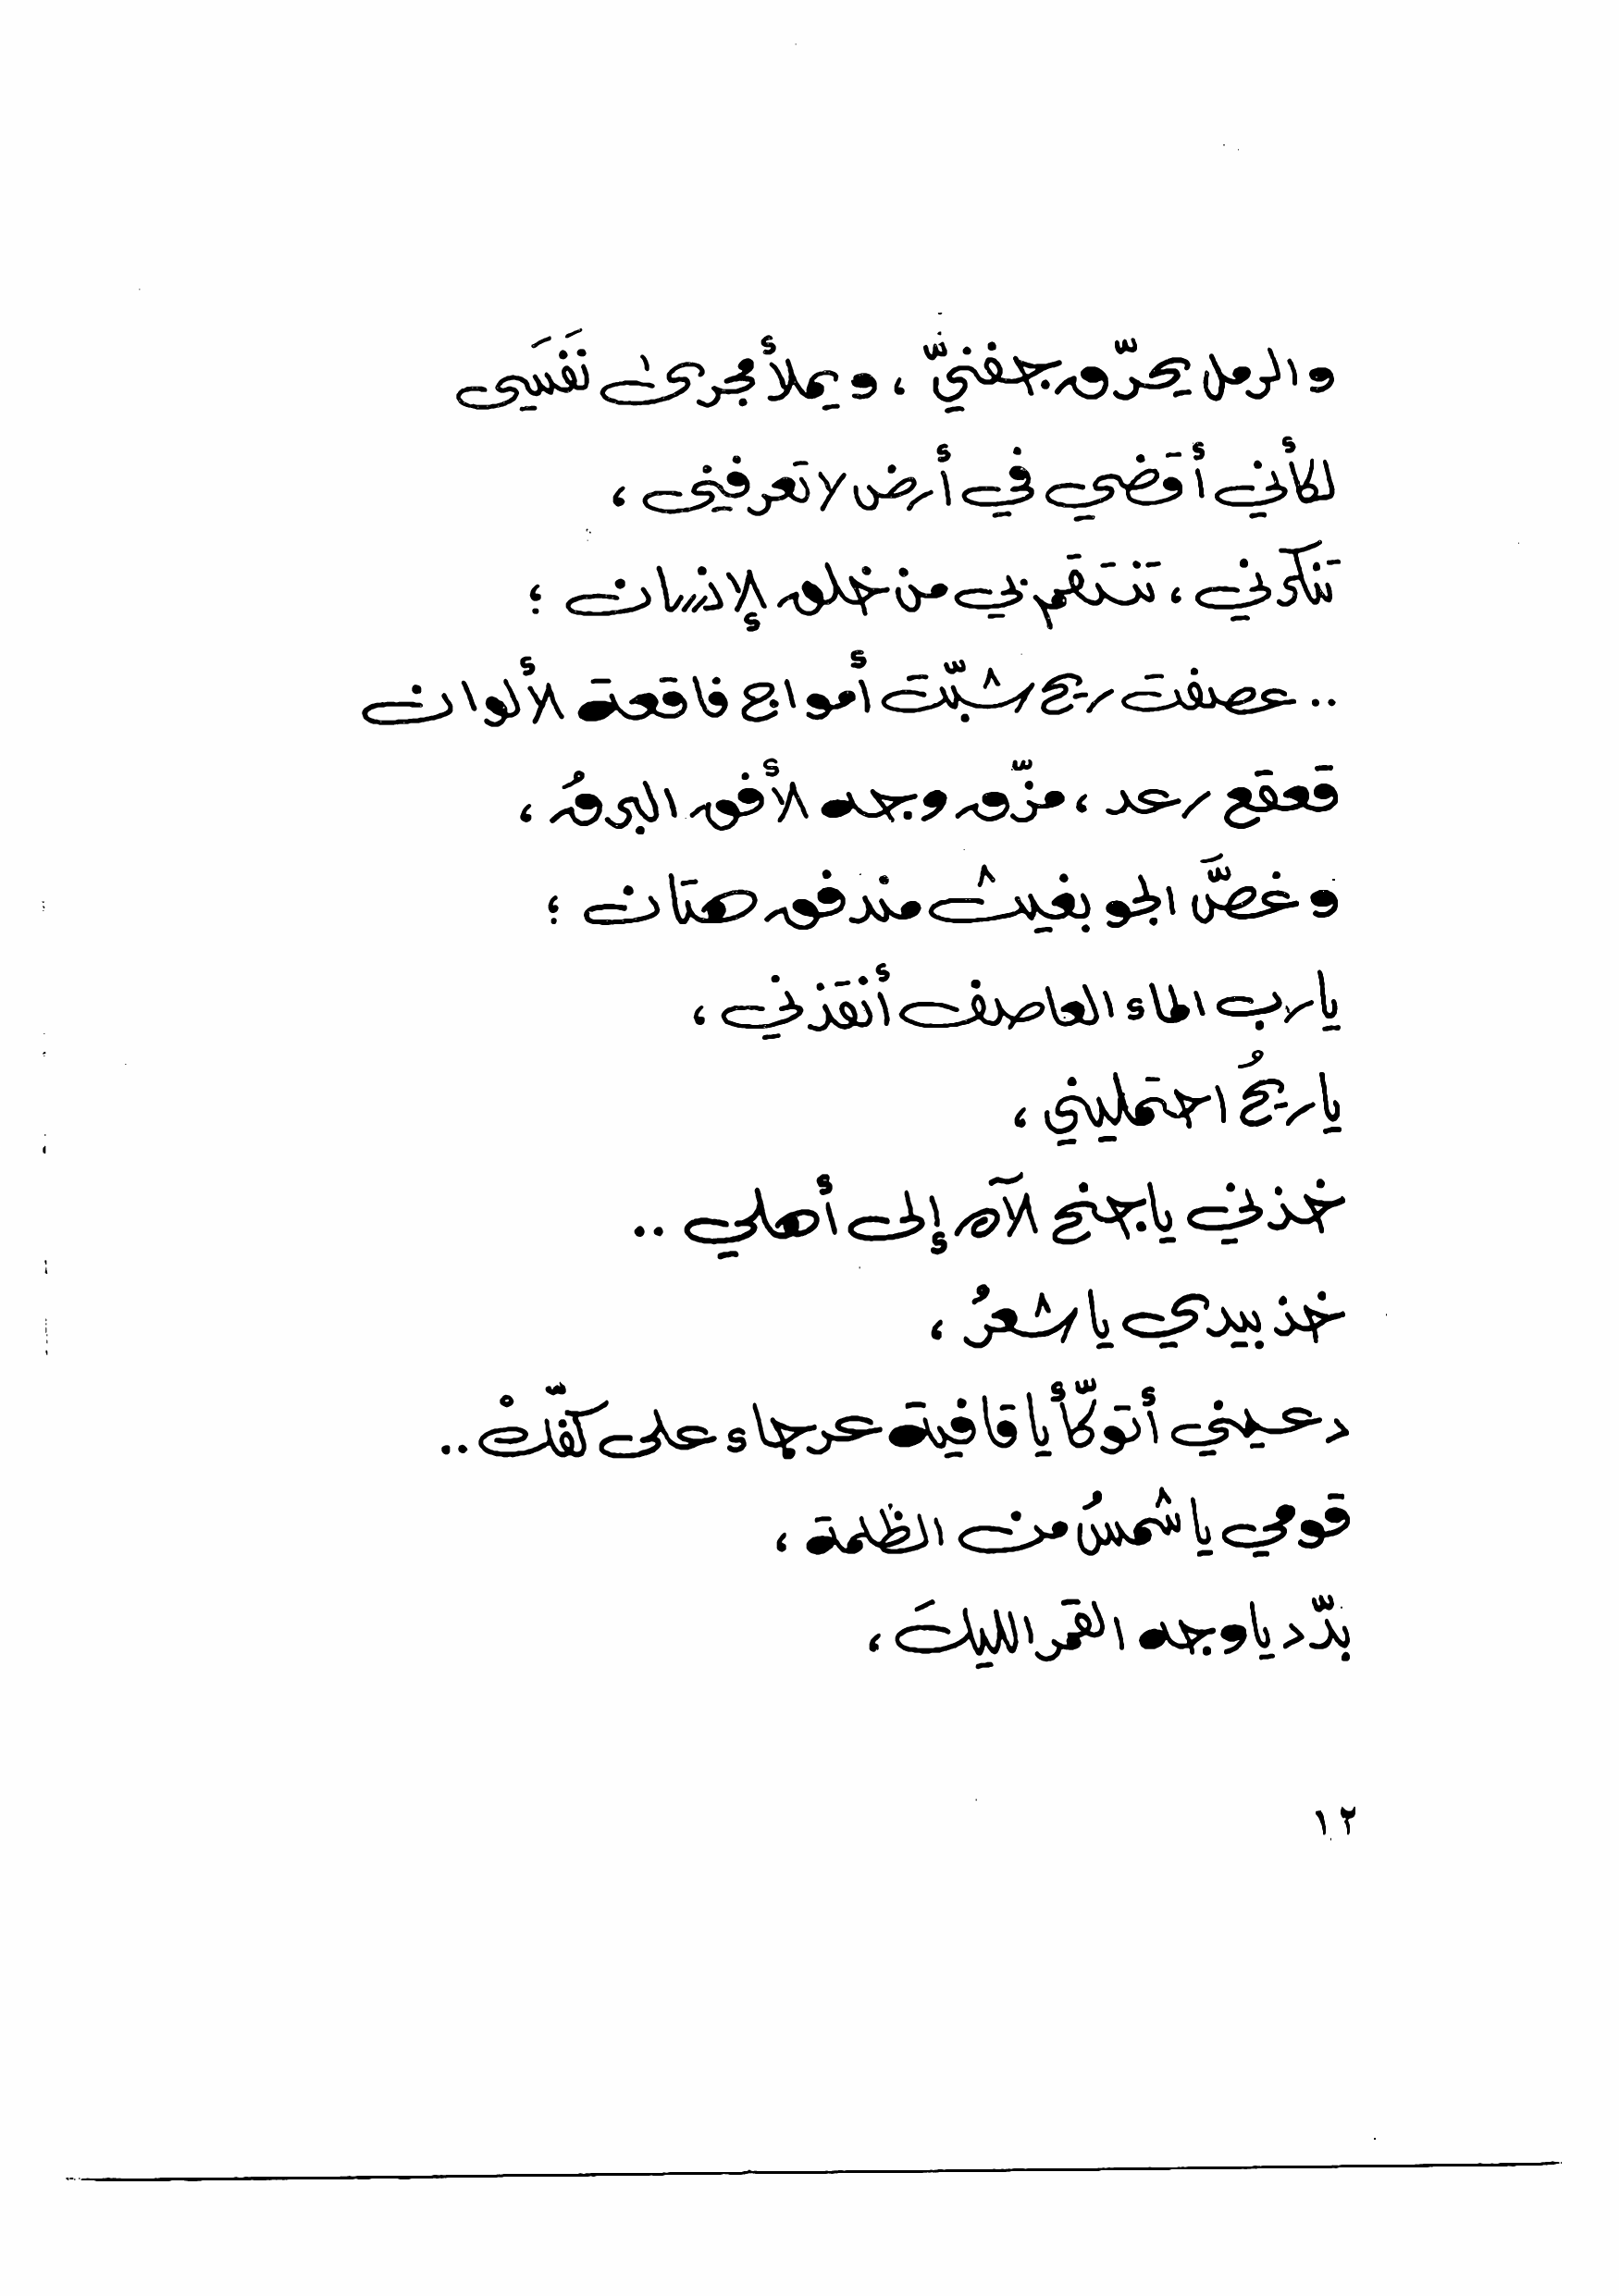 والرمل يحرّق جفنيّ ، ويملأ مجرى نَفَسَي
لكأني أقضي في أرض لا تعرفني ،
تنكرني ، تنتقم بي من خلق الإنسان ؛
.. عصفت ريح شبّت أمواج فاقعة الألوان
قعقع رعد ، مزّق وجه الأفق البرقُ ،
وغصَّ الجو بغيث مندفق هتان ؛
يارب الماء العاصف أنقذني ،
ياريحُ احتمليني ،
خذني ياجنح الآه إلى أهلي ..
خذ بيدي ياشعرُ ،
دعيني أتوكّأ ياقافية عرجاء على كفّكْ ..
قومي ياشمسُ من الظلمة ،
بدّد ياوجه القمر الليلَ ،
١٢